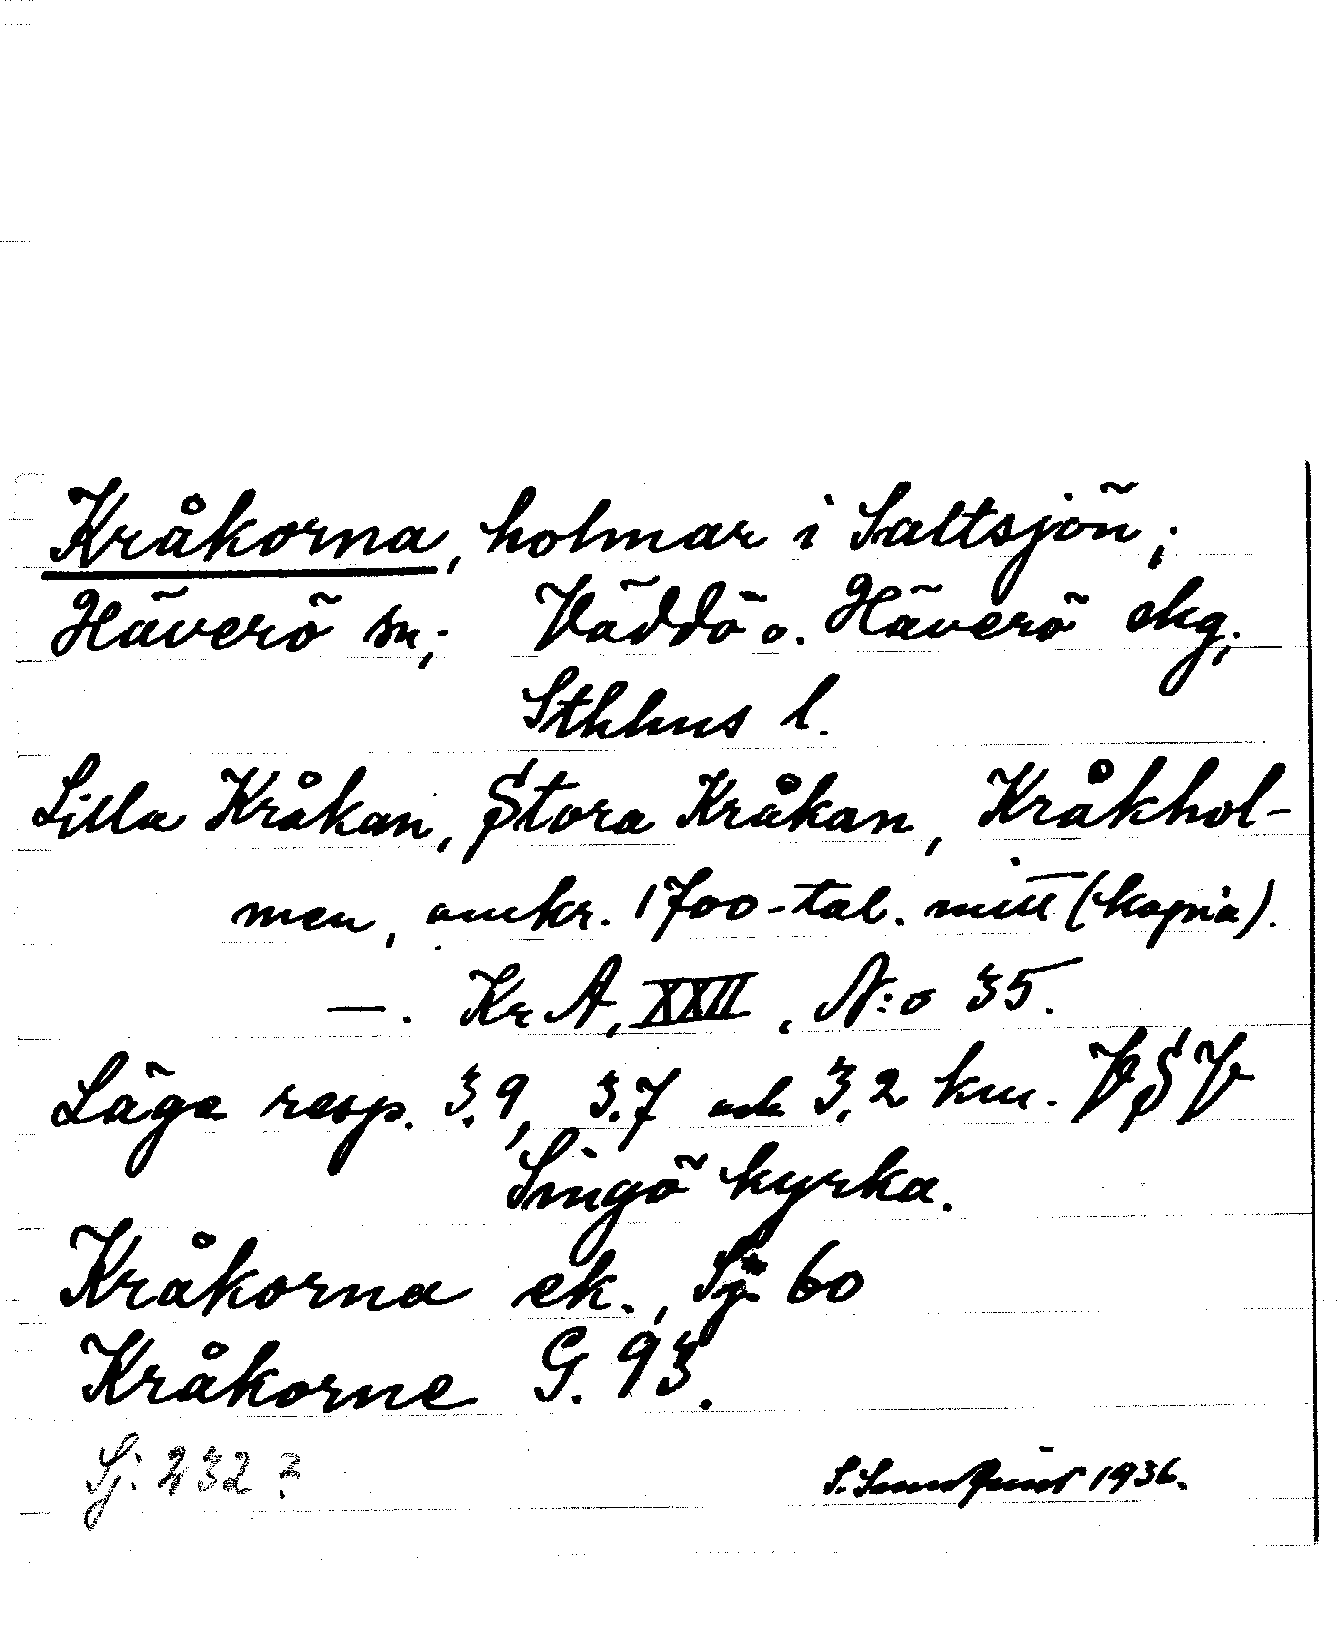 Kråkorna, holmar i Saltsjön;
Häverö sn; Väddö o. Häverö skg;
Sthlms l.
Lilla Kråkan, Stora Kråkan, Kråkhol-
men, omkr. 1700-tal. mitt (kopia).
—. Kr A, XXII, N:o 35.
Läge resp. 3.9, 3.7 och 3,2 km. VSV
Singö kyrka.
Kråkorna ek., Sj 60
Kråkorne G. 93.
Sj. 232 ?
S. Sundqvist 1936.